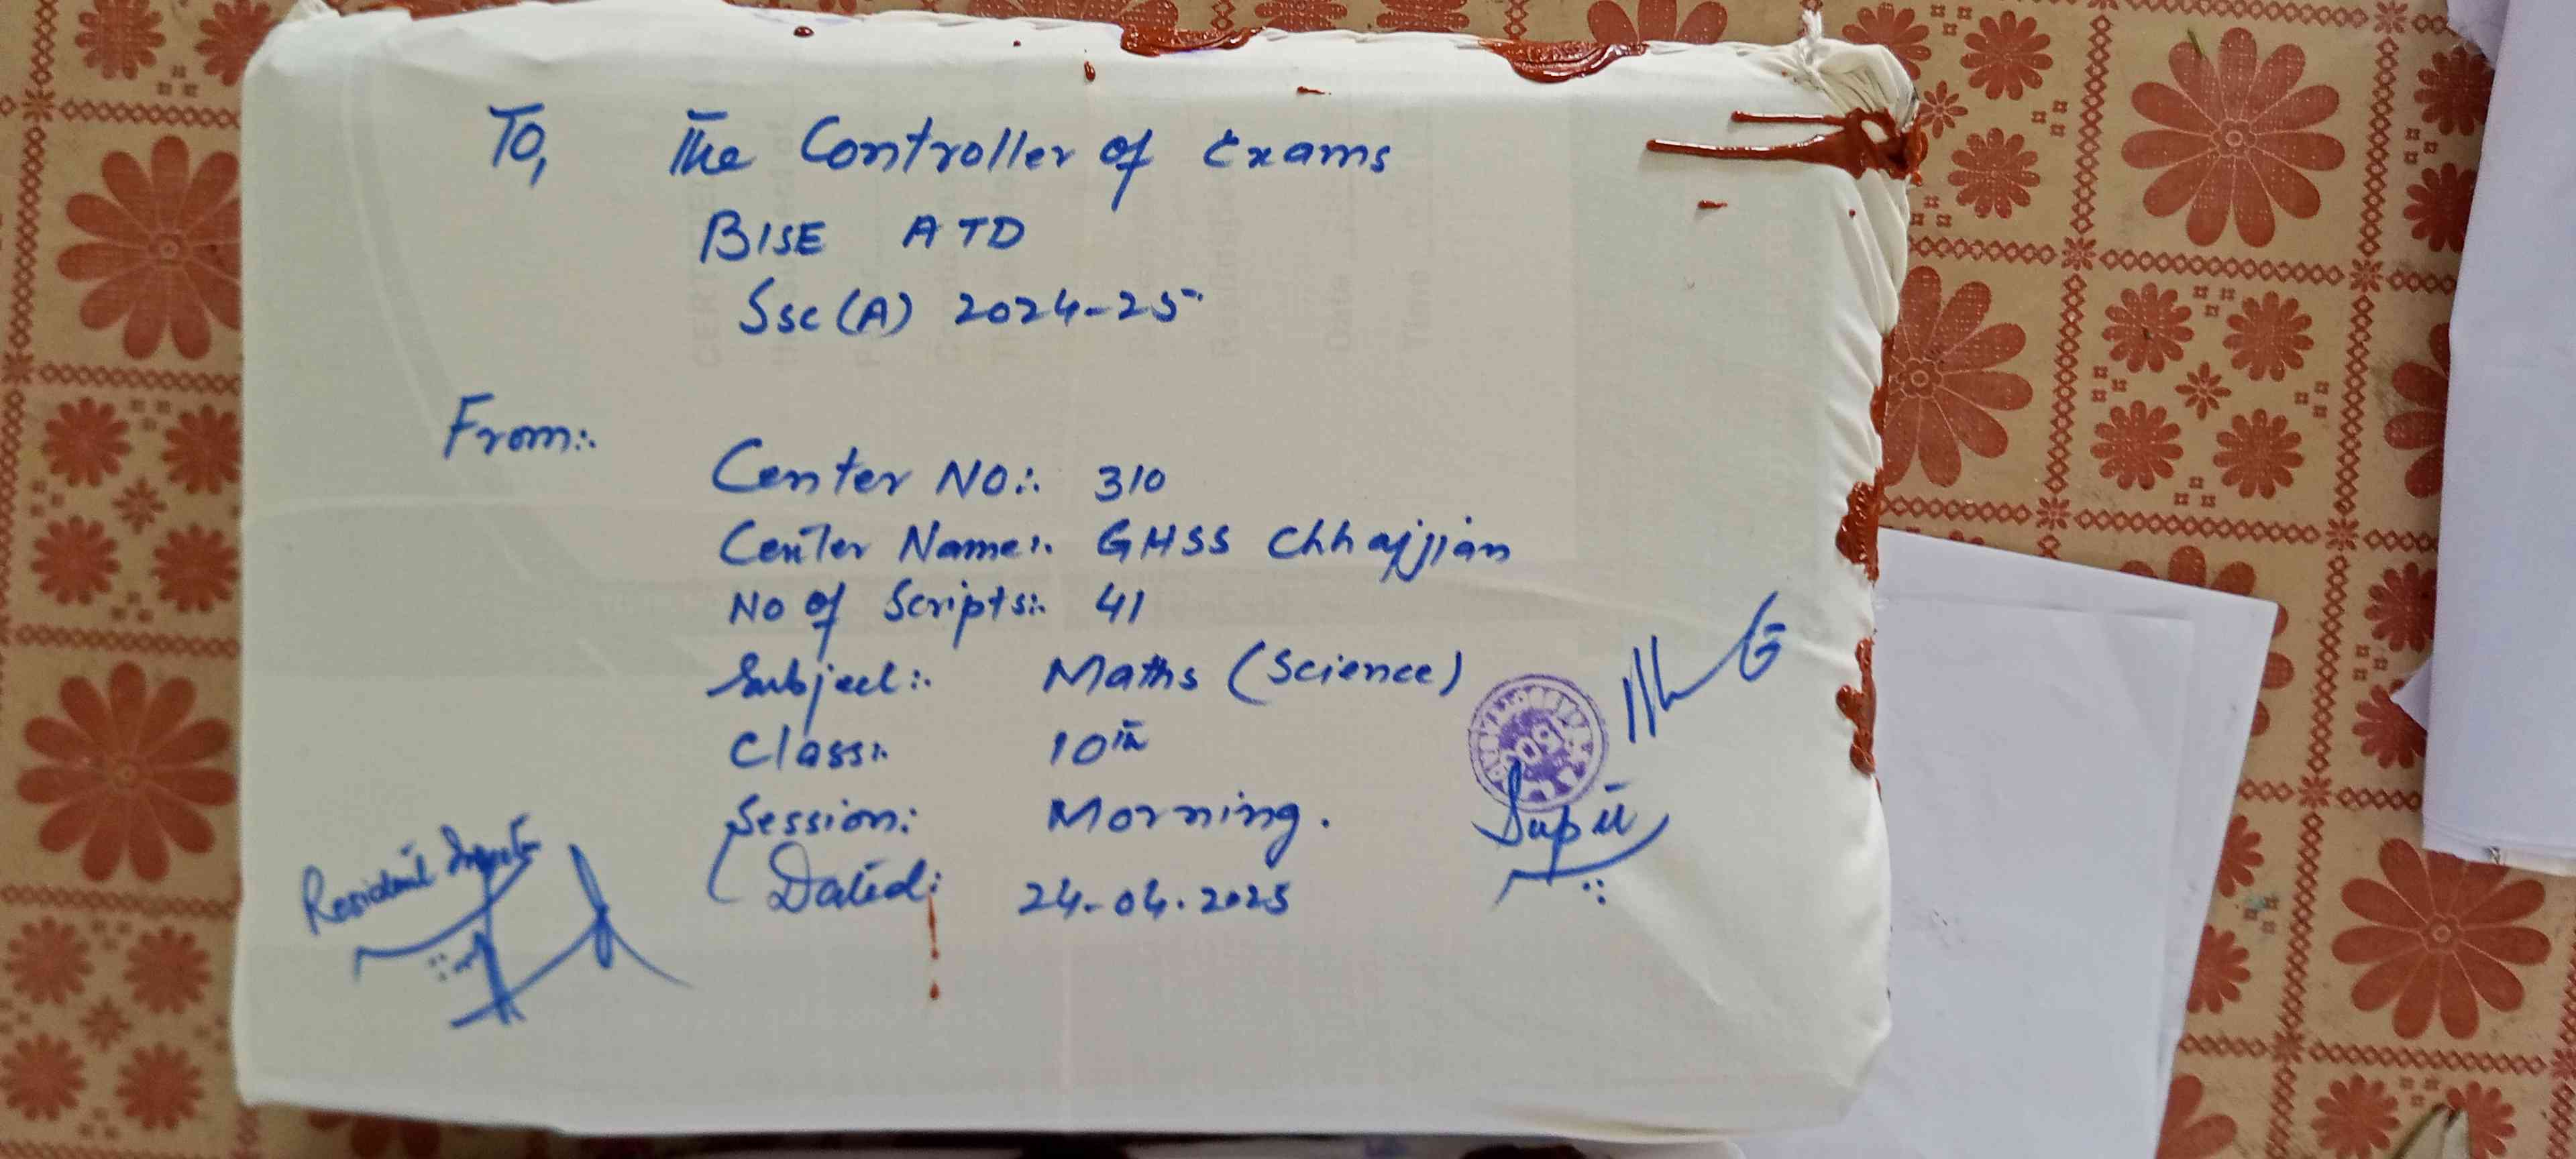 To, The Controller of Exams
BISE ATD
SSC (A) 2024-25
From:
Center NO: 310
Center Name: GHSS Chhajjian
No of Scripts: 41
Subject: Maths (Science)
Class: 10th
Session: Morning.
Dated: 24-04-2025
Resident Inspector
Supdt